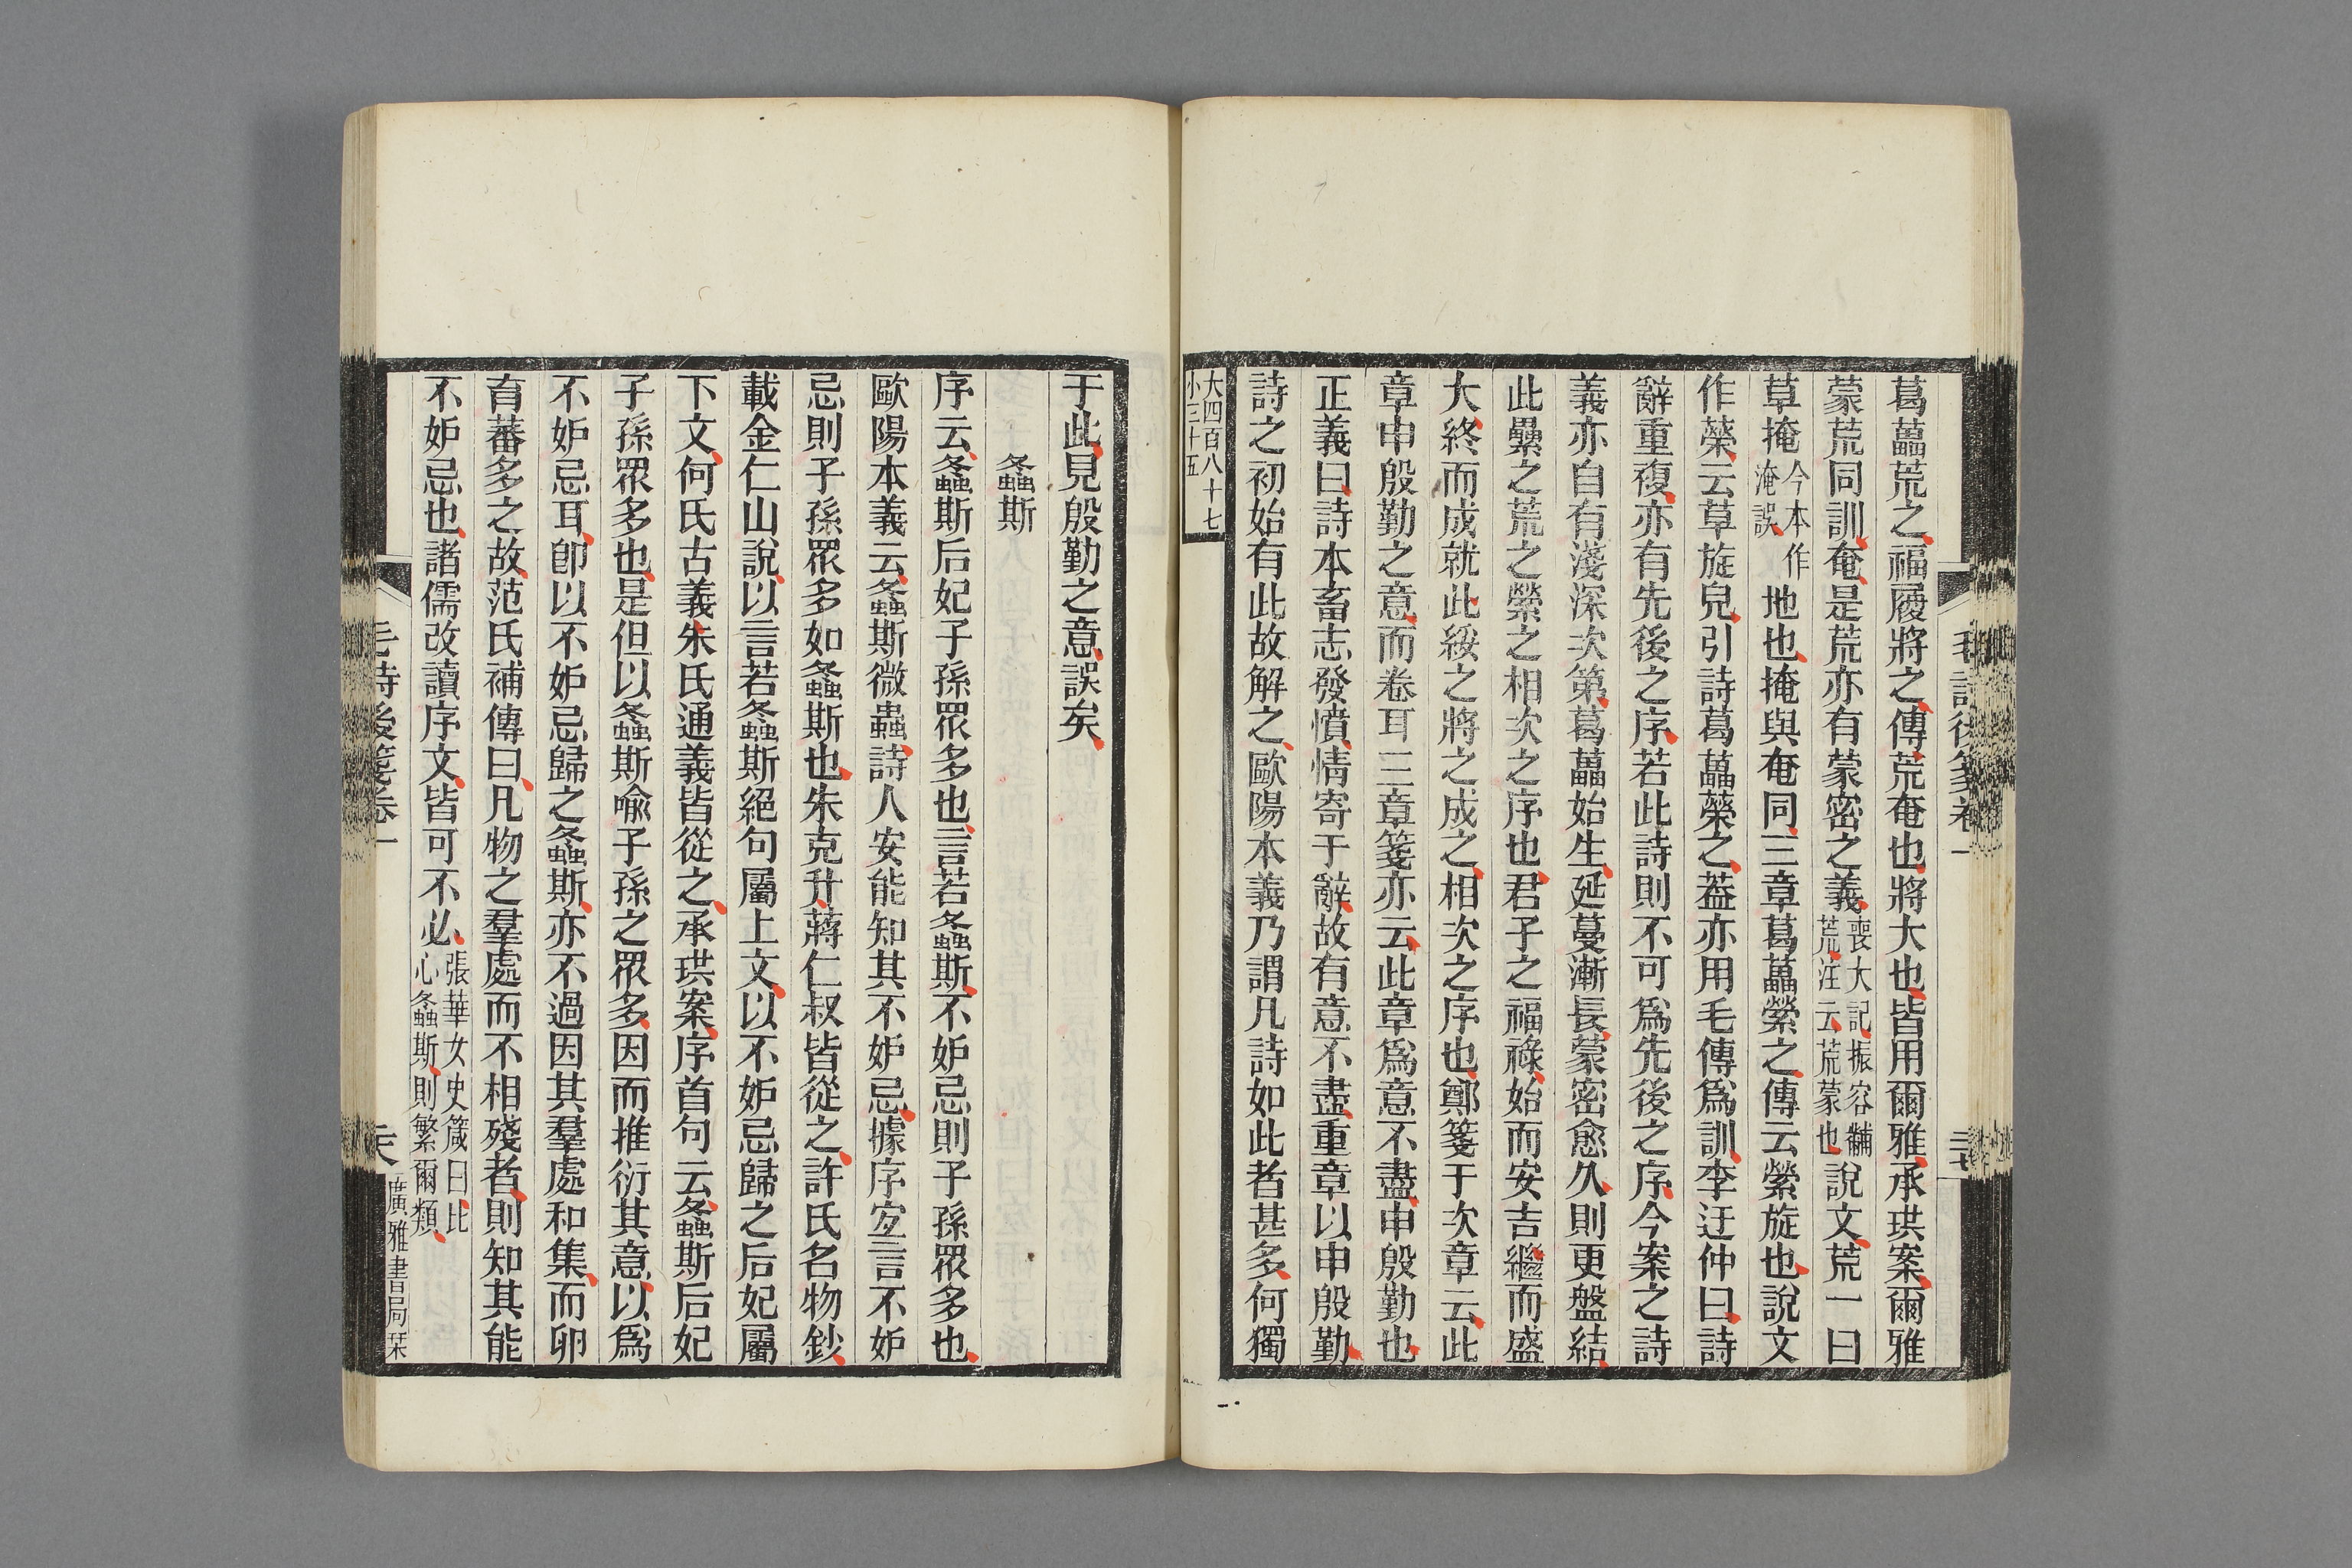 毛詩後箋卷一
葛藟荒之福履將之傳荒奄也將大也皆用爾雅承珙案爾雅
蒙荒同訓奄是荒亦有蒙密之義喪大記振容黼荒注云荒蒙也說文荒一曰
草掩今本作淹誤地也掩與奄同三章葛藟縈之傳云縈旋也說文
作蘂云草旋皃引詩葛藟蘂之葢亦用毛傳爲訓李迂仲曰詩
辭重複亦有先後之序若此詩則不可爲先後之序今案之詩
義亦自有淺深次第葛藟始生延蔓漸長蒙密愈久則更盤結
此纍之荒之縈之相次之序也君子之福祿始而安吉繼而盛
大終而成就此綏之將之成之相次之序也鄭箋于次章云此
章申殷勤之意而卷耳三章箋亦云此章爲意不盡申殷勤也
正義曰詩本畜志發憤情寄于辭故有意不盡重章以申殷勤
詩之初始有此故解之歐陽本義乃謂凡詩如此者甚多何獨
大四百八十七
小三十五
于此見殷勤之意誤矣
螽斯
序云螽斯后妃子孫眾多也言若螽斯不妒忌則子孫眾多也
歐陽本義云螽斯微蟲詩人安能知其不妒忌據序宐言不妒
忌則子孫眾多如螽斯也朱克升蔣仁叔皆從之許氏名物鈔
載金仁山說以言若螽斯絕句屬上文以不妒忌歸之后妃屬
下文何氏古義朱氏通義皆從之承珙案序首句云螽斯后妃
子孫眾多也是但以螽斯喻子孫之眾多因而推衍其意以爲
不妒忌耳卽以不妒忌歸之螽斯亦不過因其羣處和集而卵
育蕃多之故范氏補傳曰凡物之羣處而不相殘者則知其能
不妒忌也諸儒改讀序文皆可不必張華女史箴曰比心螽斯則繁爾類
毛詩後箋卷一
廣雅書局栞